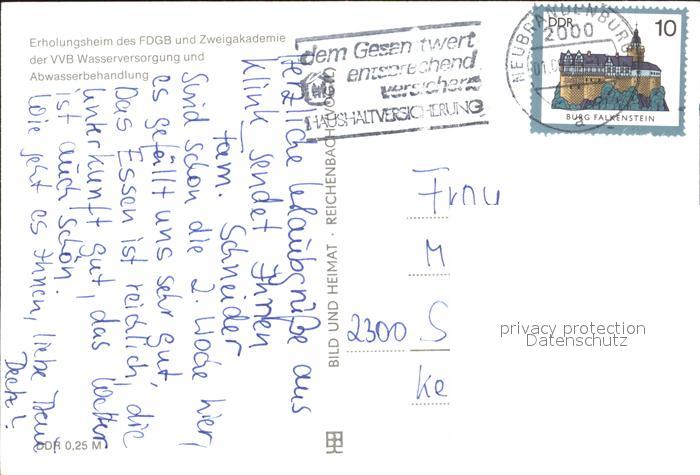 Erholungsheim des FDGB und Zweigakademie
der VVB Wasserversorgung und
Abwasserbehandlung
dem Gesamtwert
entsprechend
versichern
HAUSHALTVERSICHERUNG
NEUBRANDENBURG
2000
01.
a
DDR
10
BURG FALKENSTEIN
Herzliche Urlaubsgrüße aus
Klink sendet Ihnen
Fam. Schneider
Sind schon die 2. Woche hier,
es gefällt uns sehr gut,
Das Essen ist reichlich, die
Unterkunft gut, das Wetter
ist auch schön.
Wie geht es Ihnen, liebe
BILD UND HEIMAT · REICHENBACH
Frau
M
2300 S
Ke
privacy protection
Datenschutz
DDR 0,25 M